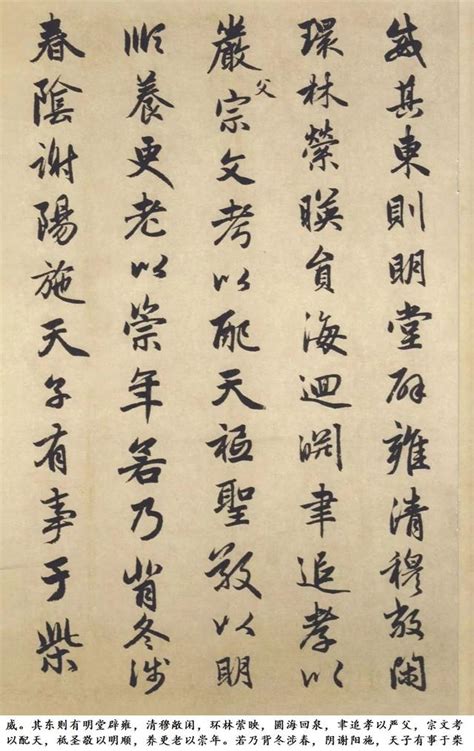 威其東則明堂辟雍清穆敞閑
環林縈暎員海迴渊聿追孝以
嚴父宗文考以配天祗聖敬以明
順養更老以崇年若乃背冬涉
春陰謝陽施天子有事于柴
威。其东则有明堂辟雍，清穆敞闲，环林萦映，圆海回泉，聿追孝以严父，宗文考
以配天，祗圣敬以明顺，养更老以崇年。若乃背冬涉春，阴谢阳施，天子有事于柴